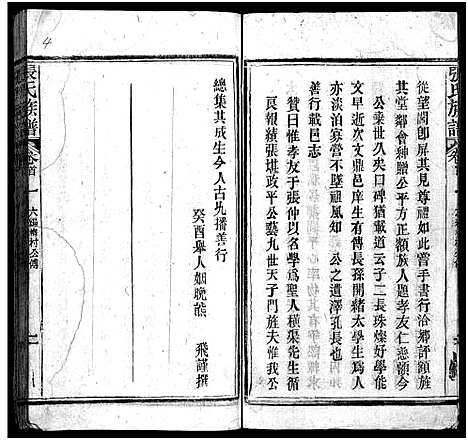 張氏族譜
從望閭卽屏其見尊禮如此嘗手書行洽鄉評額旌
其堂鄰會紳贈公平方正額族人題孝友仁慈額今
公棄世久矣口碑猶載道云子二長珠燦好學能
文早逝次文鼎邑庠生有傳長孫開緒太學生爲人
亦淡泊寡營不墜祖風知公之遺澤孔長也
善行載邑志
贊曰惟孝友于張仲以名學爲聖人橫渠先生循
良報績張堪政平公藝九世天子門旌夫惟我公
總集其成生今人古允播善行
癸酉舉人姻晚熊 飛謹撰
張氏族譜
卷首
村公傳
4